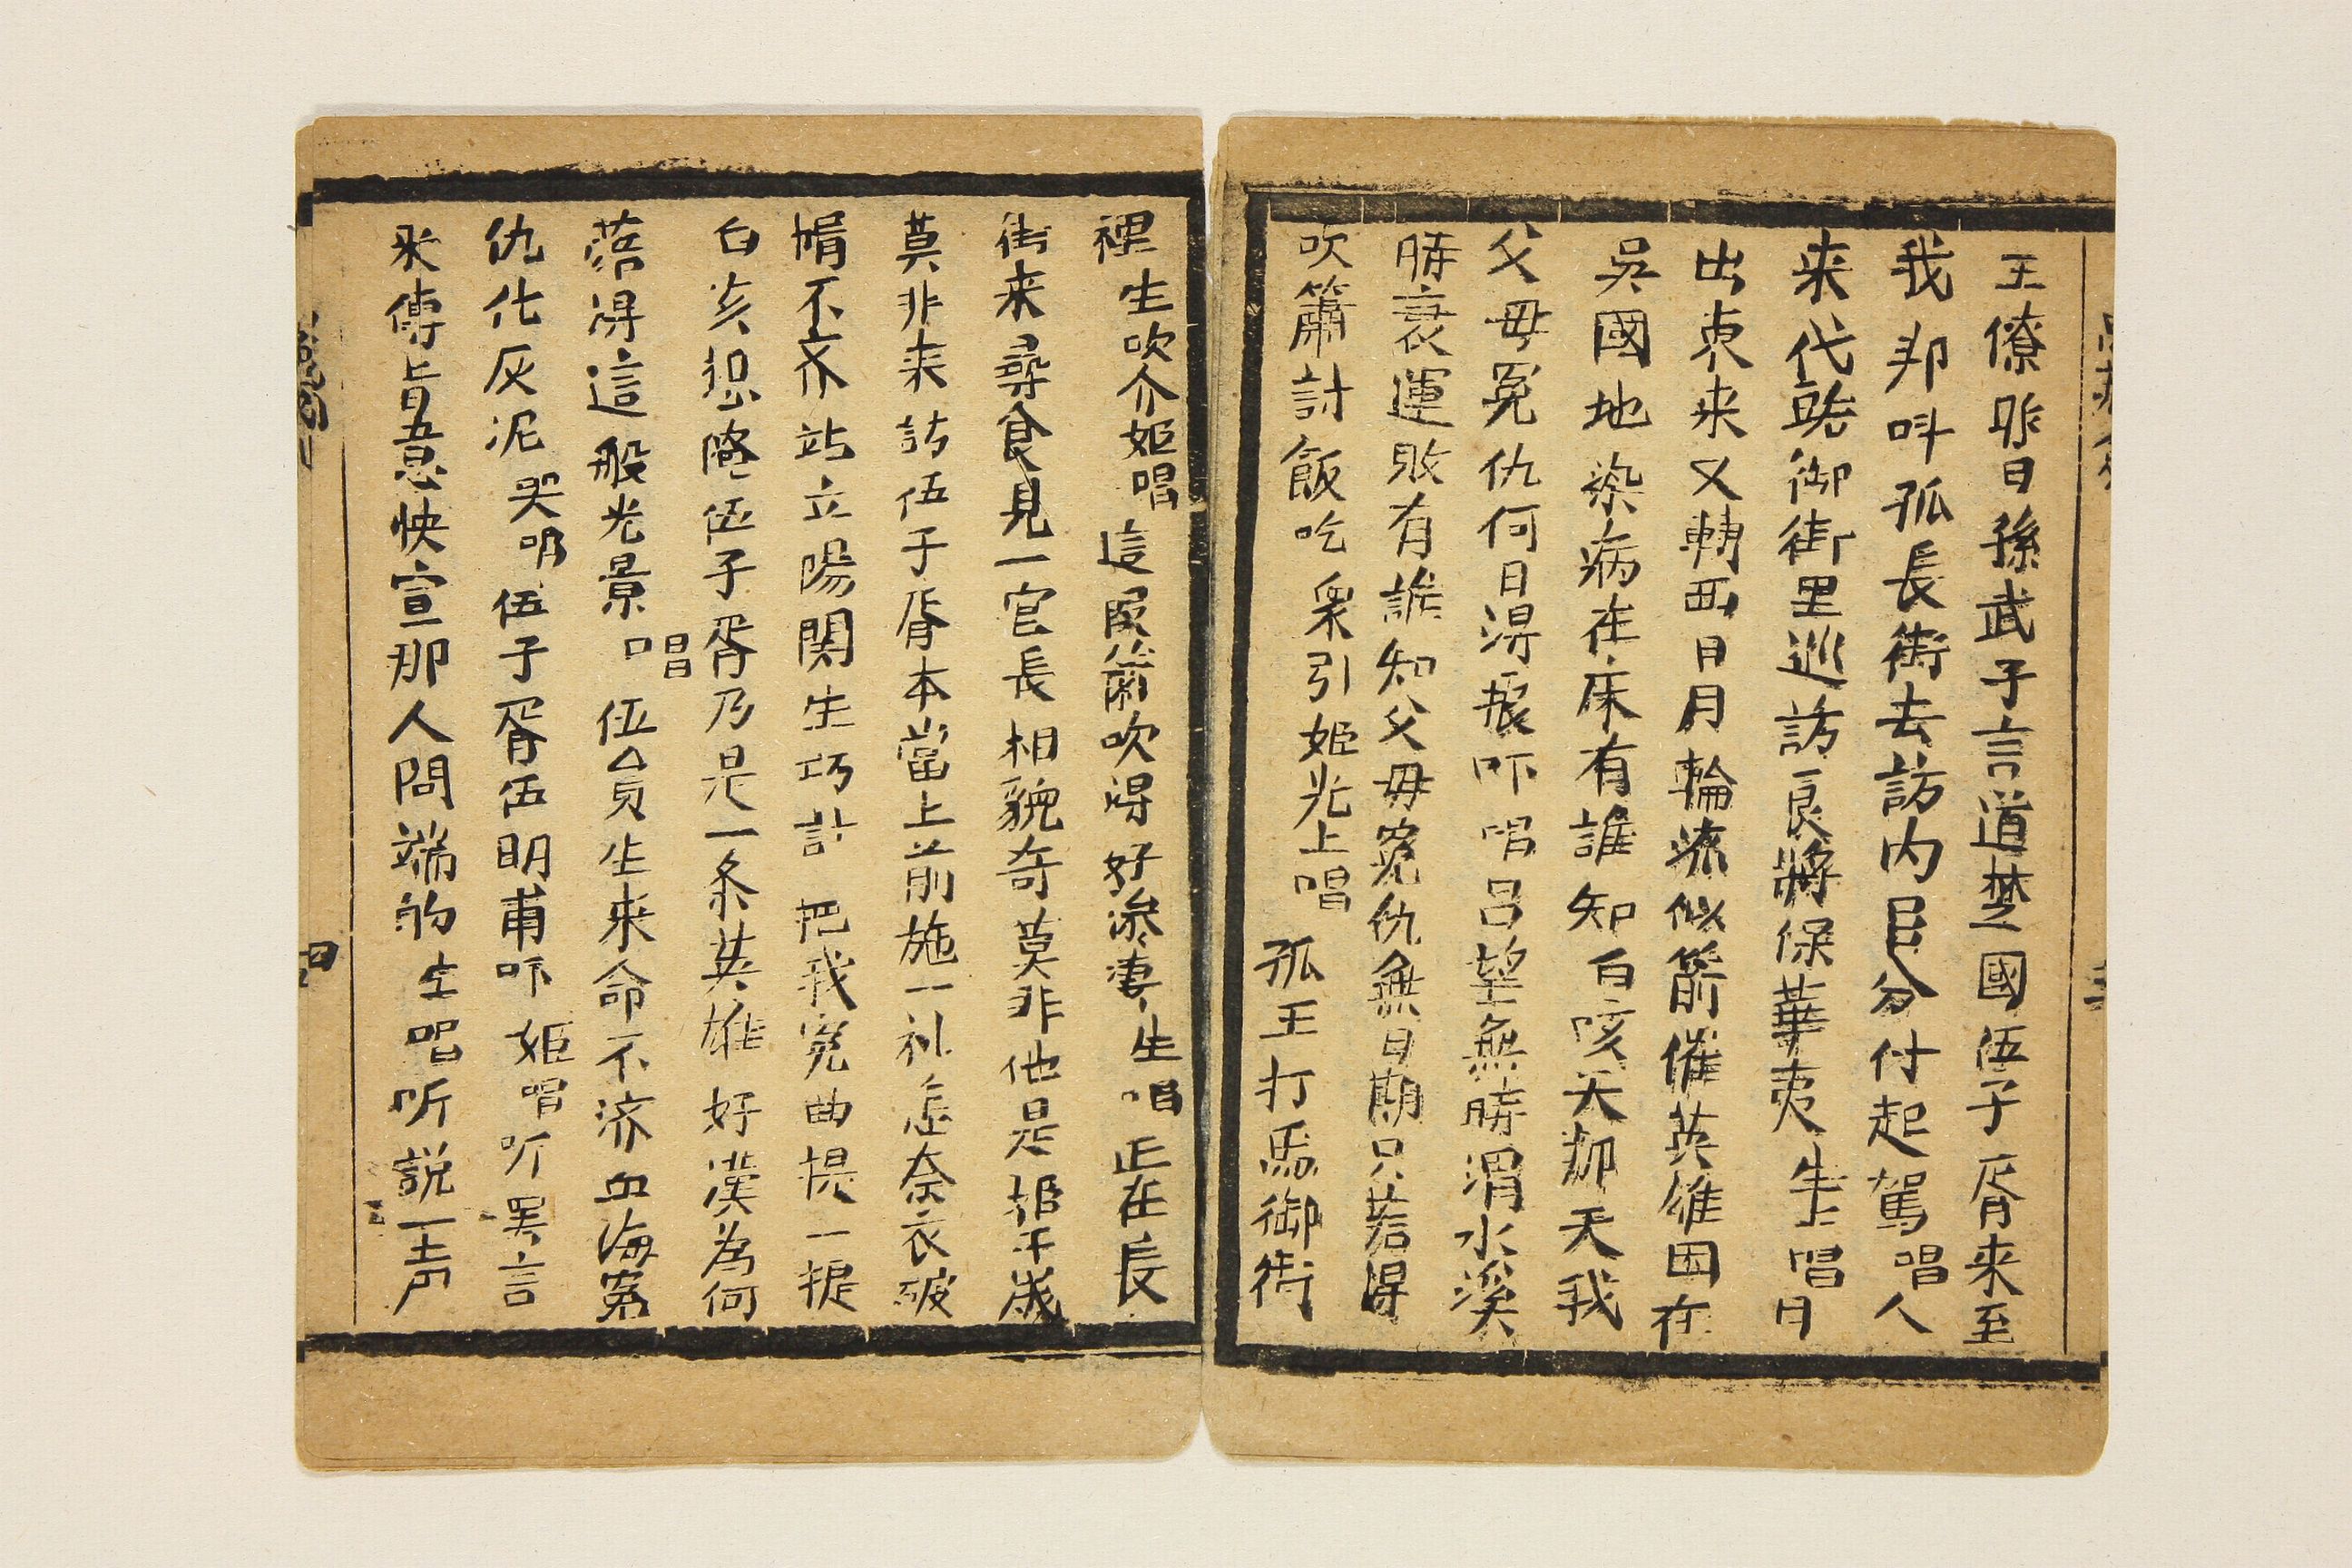 王僚昨日孫武子言道楚國伍子胥来至
我邦叫孤長街去訪内官分付起駕唱人
来代路御街里巡訪良將保華夷生上唱日
出東来又轉西日月輪流似箭催英雄困在
吳國地染病在床有誰知白咳天卬天我
父毋冤仇何日淂報吓唱呂望無時渭水溪
時衰運敗有誰知父毋寃仇無日期只落得
吹簫討飯吃衆引姬光上唱孤王打馬御街
裡生吹介姬唱這展簫吹淂好滲凄生唱正在長
街来尋食見一官長相貌奇莫非他是姬千歲
莫非来訪伍子胥本當上前施一礼怎奈衣破
帽不齐站立陽関生巧計把我寃曲提一提
白亥想俺伍子胥乃是一条英雄好漢為何
落得這般光景唱伍員生来命不济血海寃
仇化灰泥哭吅伍子胥伍明甫吓姬唱听罢言
来傳旨意快宣那人問端的生唱听説一声
四